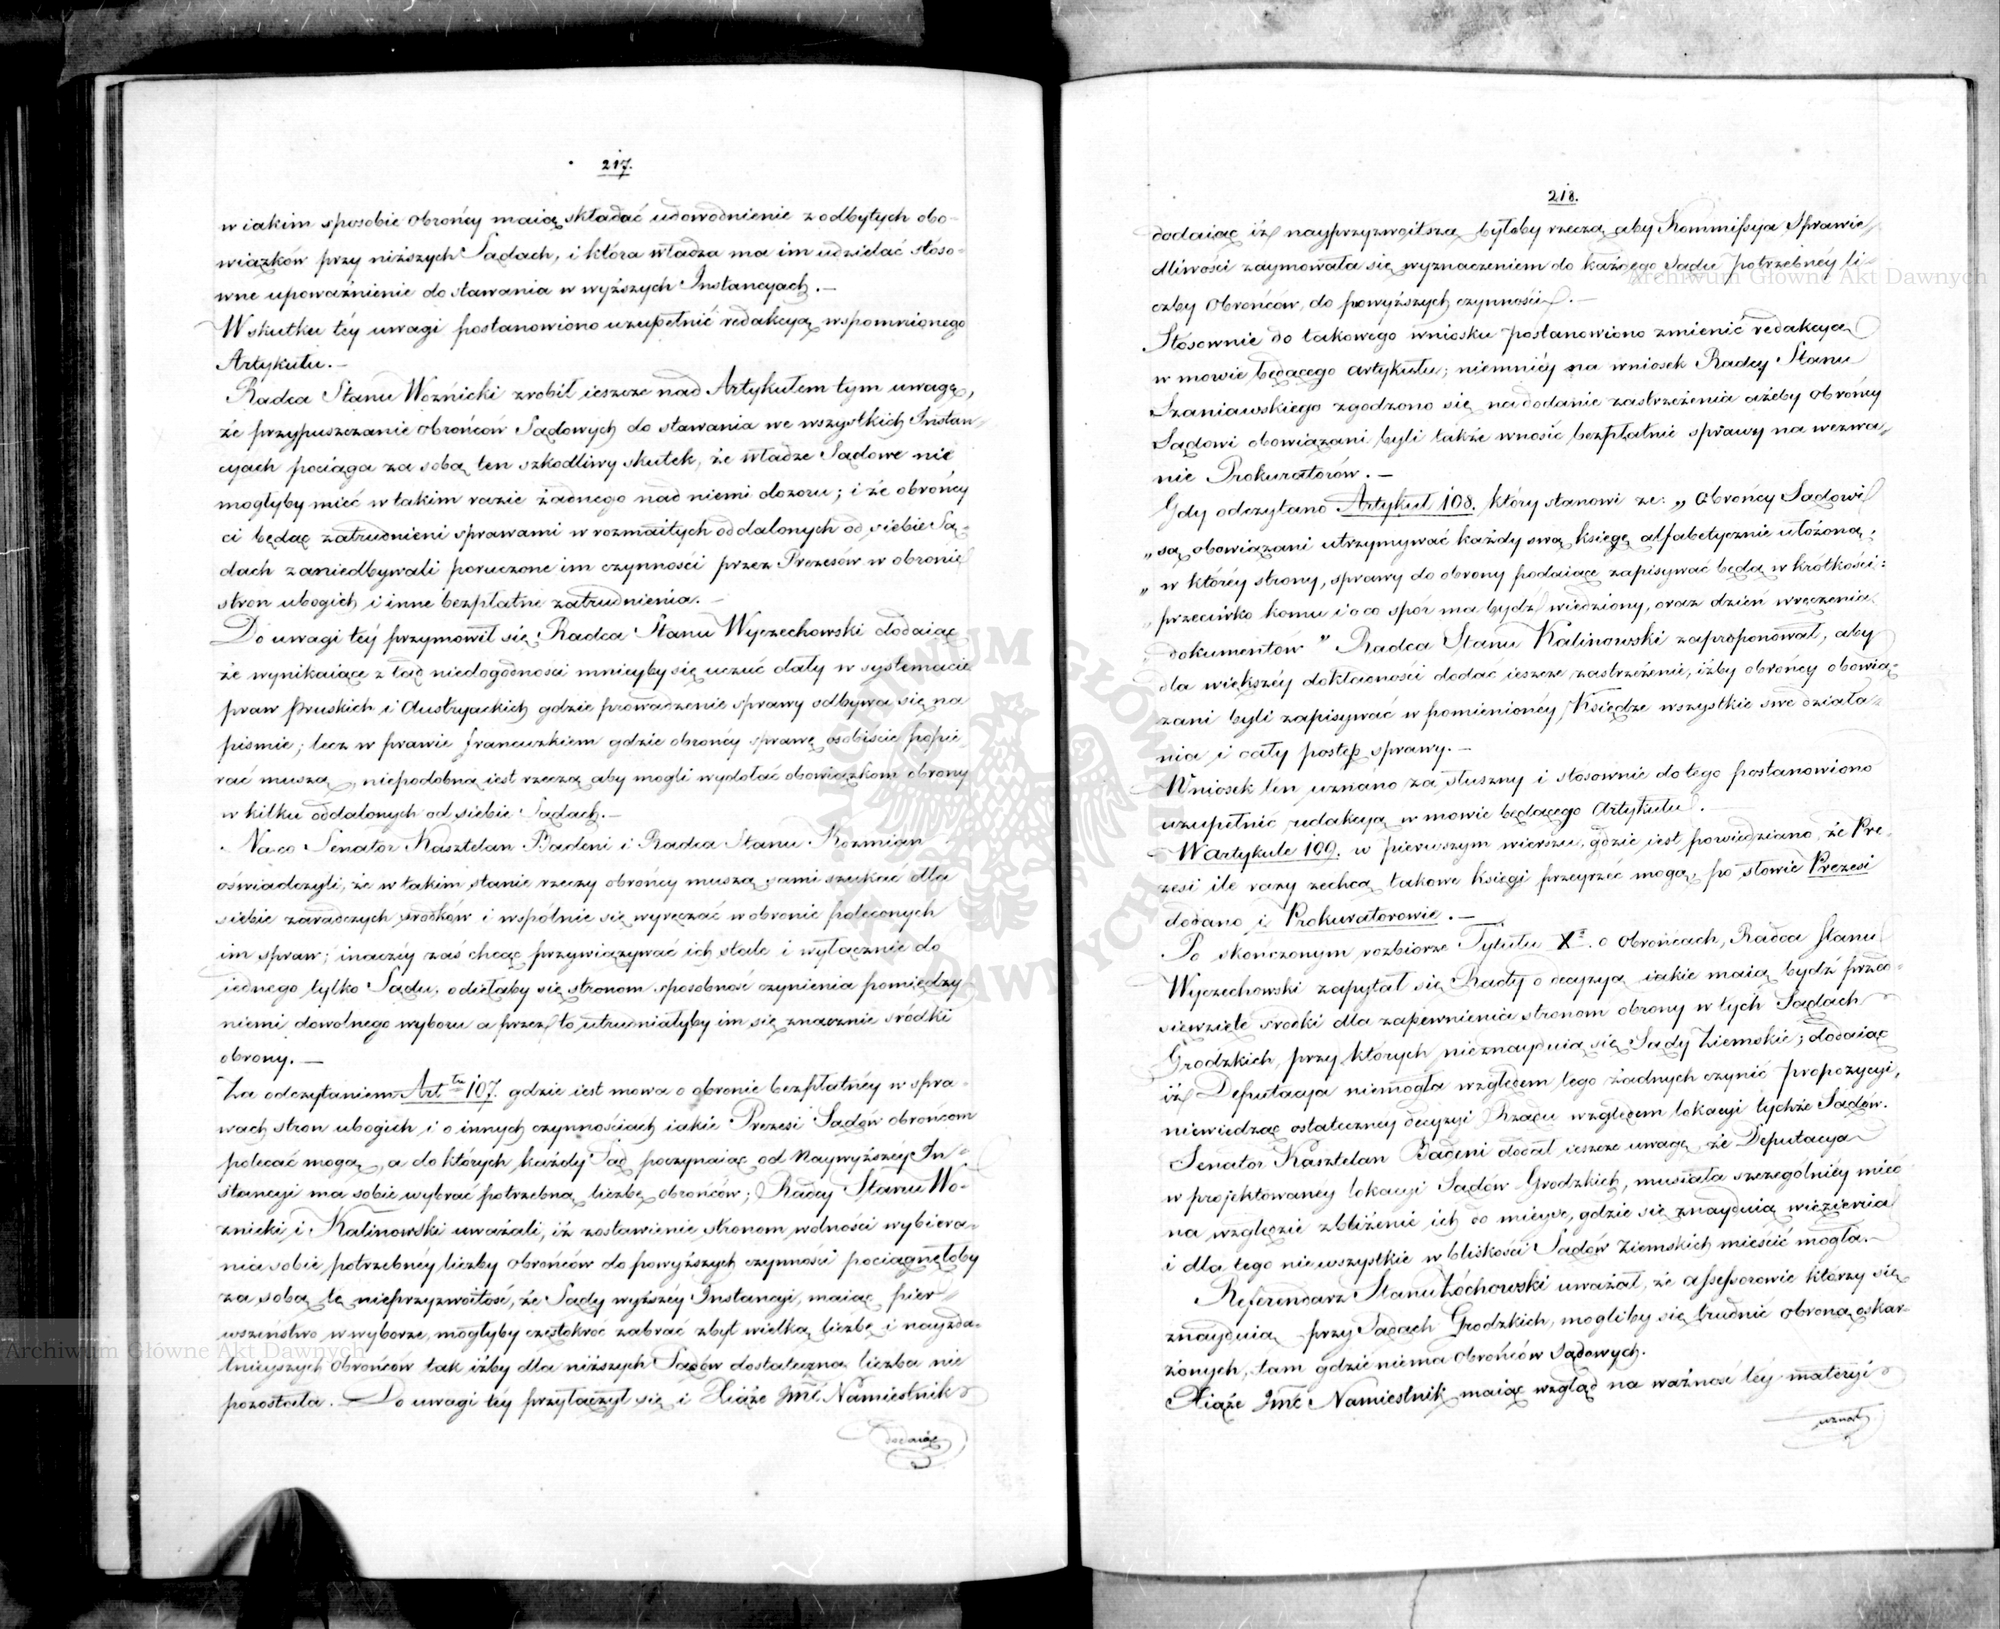 217.
w iakim sposobie obrońcy maią składać udowodnienie z odbytych obo-
wiązków przy niższych Sądach, i która władza ma im udzielać stóso-
wne upoważnienie do stawania w wyższych Instancyach. —
W skutku téy uwagi postanowiono uzupełnić redakcyą wspomnionego
Artykułu. —
Radca Stanu Woźnicki zrobił ieszcze nad Artykułem tym uwagę,
że przypuszczanie obrońców Sądowych do stawania we wszystkich Instan-
cyach pociąga za sobą ten szkodliwy skutek, że władze Sądowe nie
mogłyby mieć w takim razie żadnego nad niemi dozoru; i że obrońcy
ci będąc zatrudnieni sprawami w rozmaitych oddalonych od siebie Są-
dach zaniedbywali poruczone im czynności przez Prezesów w obronie
stron ubogich i inne bezpłatne zatrudnienia. —
Do uwagi téy przymówił się Radca Stanu Wyczechowski dodaiąc
że wynikaiące z tąd niedogodności mnieyby się uczuć dały w systemacie
praw Pruskich i Austryackich gdzie prowadzenie sprawy odbywa się na
piśmie; lecz w prawie francuzkiem gdzie obrońcy sprawę osobiście popie-
rać muszą, niepodobną iest rzeczą aby mogli wydołać obowiązkom obrony
w kilku oddalonych od siebie Sądach. —
Na co Senator Kasztelan Badeni i Radca Stanu Kozmian
oświadczyli, że w takim stanie rzeczy obrońcy muszą sami szukać dla
siebie zaradczych środków i wspólnie się wyręczać w obronie poleconych
im spraw; inaczéy zaś chcąc przywiązywać ich stale i wyłącznie do
iednego tylko Sądu, odiętaby się stronom sposobność czynienia pomiędzy
niemi dowolnego wyboru a przez to utrudniałyby im się znacznie srodki
obrony. —
Za odczytaniem Art łu 107. gdzie iest mowa o obronie bezpłatnéy w spra-
wach stron ubogich i o innych czynnościach iakie Prezesi Sądów obrońcom
polecać mogą, a do których każdy Sąd poczynaiąc od Naywyższéy In-
stancyi ma sobie wybrać potrzebną liczbę obrońców; Radcy Stanu Wo-
źnicki i Kalinowski uważali, iż zostawienie stronom wolności wybiera-
nia sobie potrzebnéy liczby obrońców do powyższych czynności pociągnęłoby
za sobą tę nieprzyzwoitość, że Sądy wyższéy Instancyi, maiąc pier-
wszeństwo w wyborze, mogłyby częstokroć zabrać zbyt wielką liczbę i nayzda-
tnieyszych Obrońców tak iżby dla niższych Sądów dostateczna liczba nie
pozostała. Do uwagi téy przyłączył się i Xiąże Jmć Namiestnik
dodaiąc
218.
dodaiąc iż nayprzyzwoitszą byłoby rzeczą aby Kommissya Sprawie-
dliwości zaymowała się wyznaczeniem do każdego Sądu potrzebnéy li-
czby Obrońców, do powyższych czynności. —
Stósownie do takowego wniosku postanowiono zmienić redakcyą
w mowie będącego artykułu; niemniéy na wniosek Radcy Stanu
Szaniawskiego zgodzono się na dodanie zastrzeżenia ażeby obrońcy
Sądowi obowiązani byli także wnosić bezpłatnie sprawy na wezwa-
nie Prokuratorów. —
Gdy odczytano Artykuł 108. który stanowi że: „Obrońcy Sądowi
„są obowiązani utrzymywać każdy swą księgę alfabetycznie ułożoną,
„w któréy strony, sprawy do obrony podaiące zapisywać będą w krótkości:
„przeciwko komu i o co spór ma bydź wiedziony, oraz dzień wręczenia
„dokumentów” Radca Stanu Kalinowski zaproponował, aby
dla większéy dokładności dodać ieszcze zastrzeżenie, iżby obrońcy obowią-
zani byli zapisywać w pomienionéy Księdze wszystkie swe działa-
nia i cały postęp sprawy. —
Wniosek ten uznano za słuszny i stósownie do tego postanowiono
uzupełnić redakcyą w mowie będącego Artykułu. —
W artykule 109. w pierwszym wierszu, gdzie iest powiedziano, że Pre-
zesi ile razy zechcą takowe księgi przeyrzéć mogą, po słowie Prezesi
dodano i Prokuratorowie. —
Po skończonym rozbiorze Tytułu X o Obrońcach, Radca Stanu
Wyczechowski zapytał się Rady o decyzyą iakie maią bydź przed-
sięwzięte srodki dla zapewnienia stronom obrony w tych Sądach
Grodzkich, przy których nieznayduią się Sądy Ziemskie; dodaiąc
iż Deputacya niemogła względem tego żadnych czynić propozycyi,
niewiedząc ostateczney decyzyi Rządu względem lokacyi tychże Sądów.
Senator Kasztelan Badeni dodał ieszcze uwagę, że Deputacya
w projektowaney lokacyi Sądów Grodzkich, musiała szczególniéy mieć
na względzie zbliżenie ich do mieysc, gdzie się znayduią więzienia
i dla tego nie wszystkie w bliskości Sądów Ziemskich mieścić mogła. —
Referendarz Stanu Łochowski uważał, że Assessorowie którzy się
znayduią przy Sądach Grodzkich, mogliby się trudnić obroną oskar-
żonych, tam gdzie niema Obrońców Sądowych.
Xiąże Jmć Namiestnik maiąc wzgląd na ważność téy materyi
uznał
Archiwum Główne Akt Dawnych
Archiwum Główne Akt Dawnych
ARCHIWUM GŁÓWNE AKT DAWNYCH